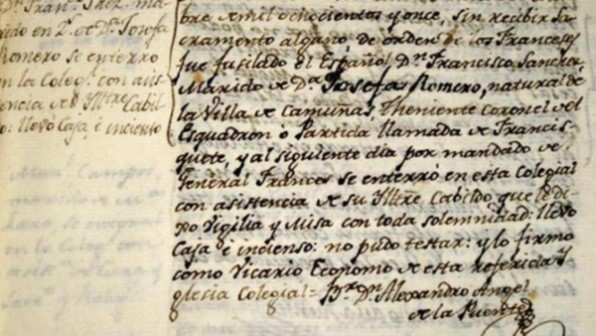 D.n Fran.co Sanz, ma-
rido en 2.as de D.a Josefa
Romero se enterro
en la Coleg.l con asis-
tencia de Ill.tre Cabil-
do: llevó Caja é incienso
bre de mil ochocientos y once, sin recibir Sa-
cramento alguno de orden de los Franceses
fue fusilado el Español D.n Francisco Sanchez
Marido de D.a Josefa Romero, natural de
la Villa de Camuñas, Theniente Coronel del
Esquadron o Partida llamada de Francis-
quete, y al siguiente dia por mandado de
General Frances se enterró en esta Colegial
con asistencia de su Ill.tre Cabildo, que le di-
xo Vigilia y Misa con toda solemnidad: llevó
Caja é incienso: no pudo testar: y lo firmo
como Vicario Economo de esta referida Y
glesia Colegial = B.r D.n Alexandro Angel
de la Puente